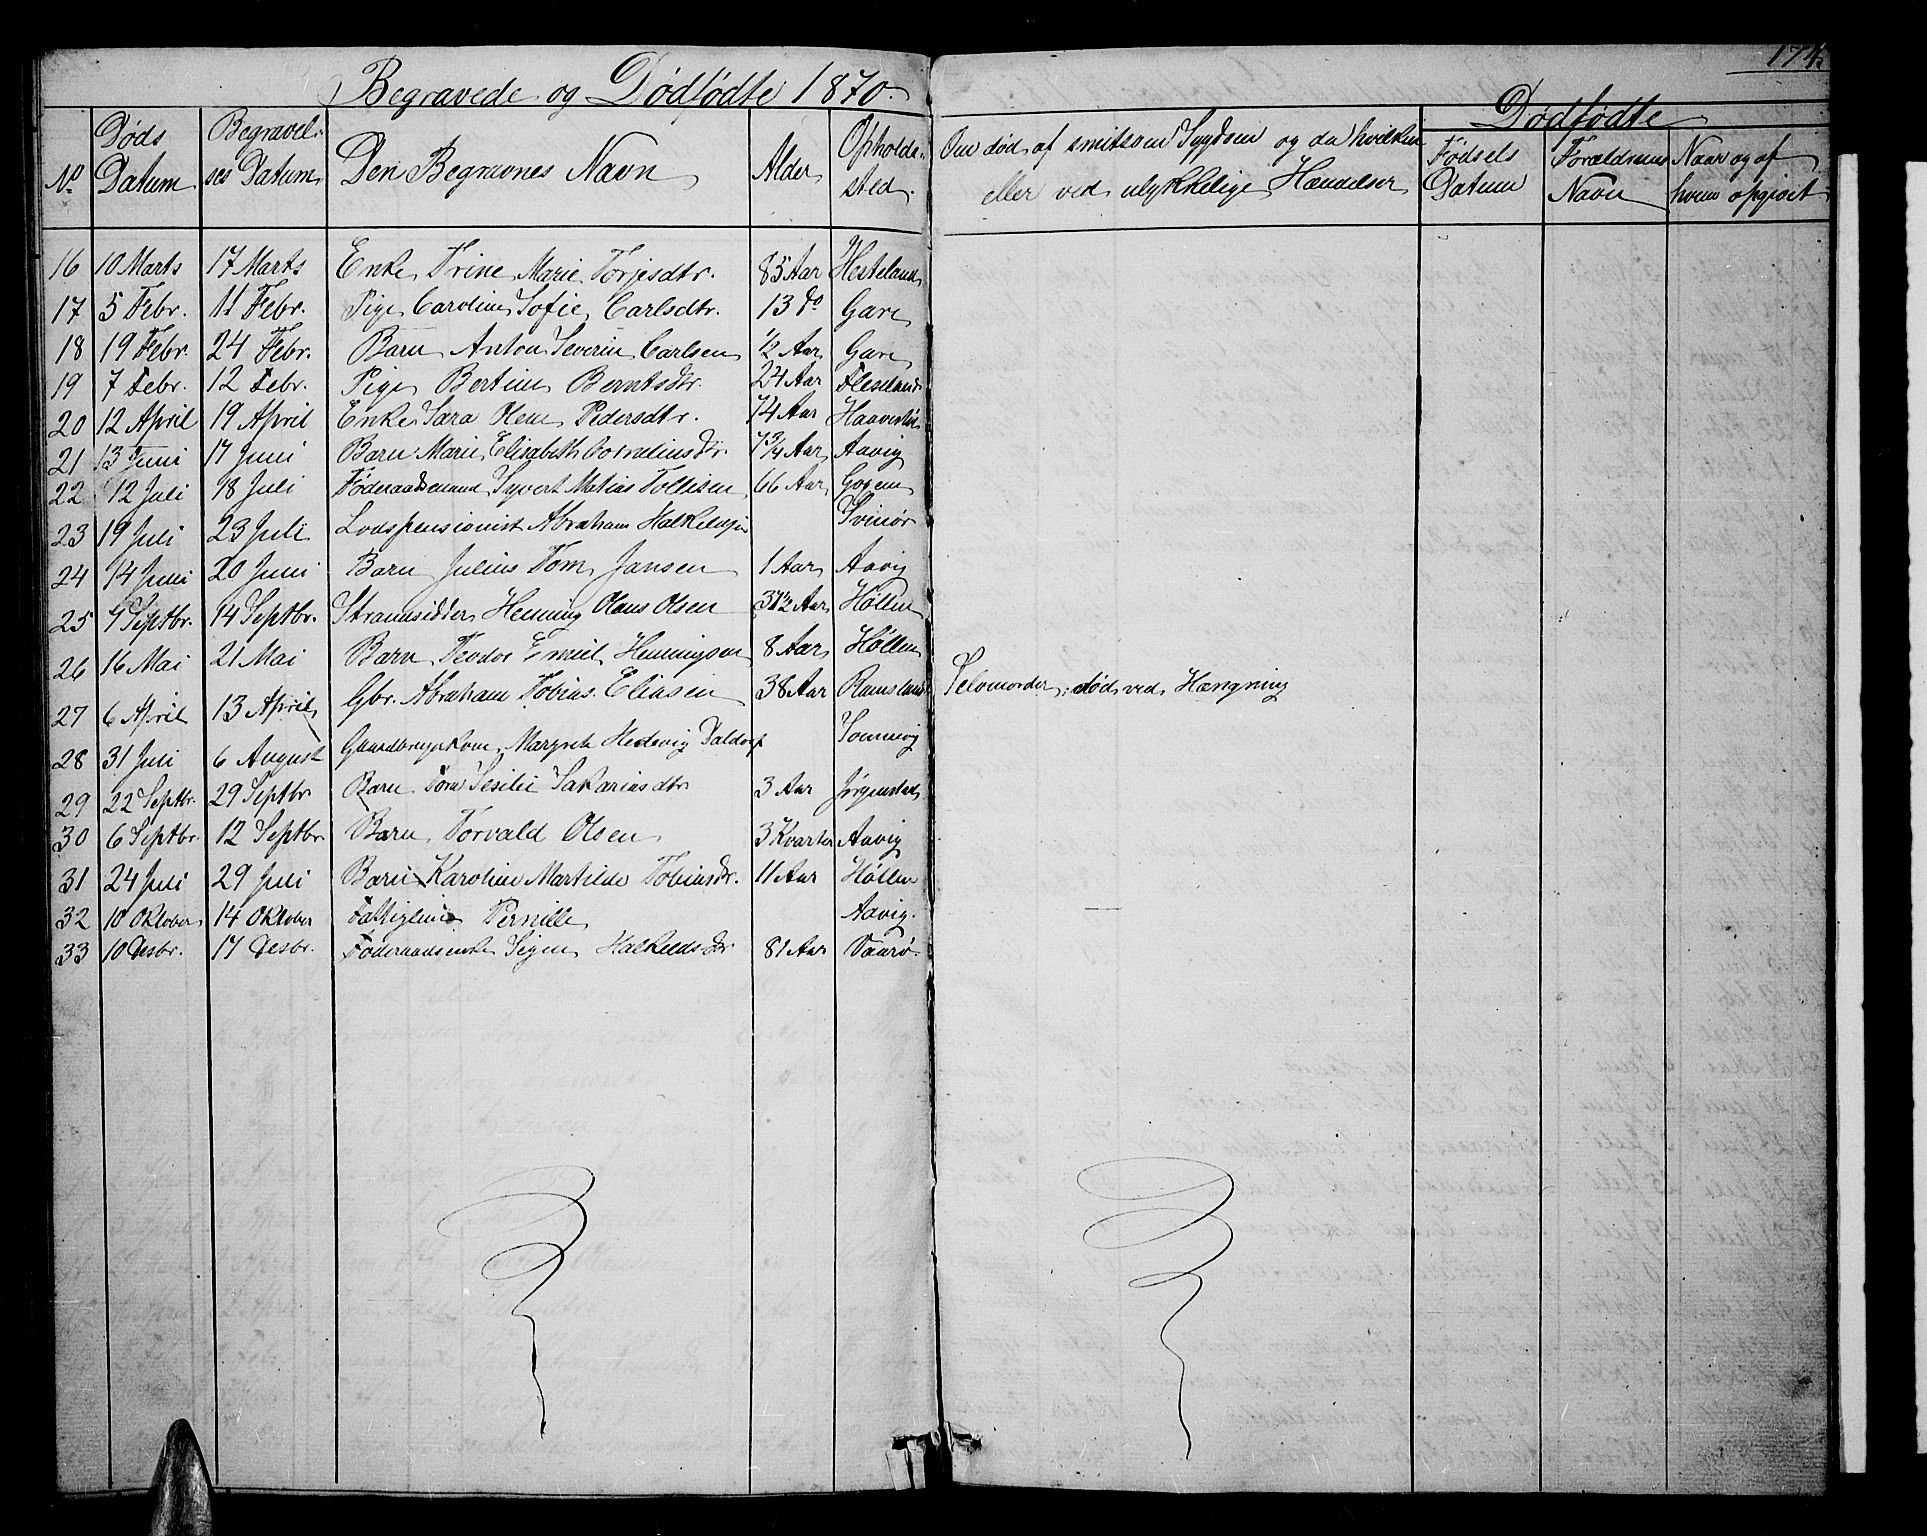 174.
Begravede og Dødfødte 1870.
No Døds Datum Begravelses Datum Den Begravnes Navn Alder Opholdssted. Om død af smitsom Sygdom og da hvilken eller ved ulykkelige Hændelser Dødfødte Fødsels Datum Forældrenes Navn Naar og af hvem opgivet
16 10 Marts 17 Marts Enke Trine Marie Torjesdtr. 85 Aar Hesteland
17 5 Febr. 11 Febr. Pige Caroline Sofie Carlsdtr. 13 do Gare
18 19 Febr. 24 Febr. Barn Anton Severin Carlsen ½ Aar Gare
19 7 Febr. 12 Febr. Pige Bertine Berntsdtr. 24 Aar
20 12 April 19 April Enke Sara Olene Pedersdtr. 74 Aar
21 13 Juni 17 Juni Barn Marie Elisabeth Corneliusdtr. 7¾ Aar Aavig
22 12 Juli 18 Juli Føderaadsmand Syvert Matias Tollisen 66 Aar
23 19 Juli 23 Juli Lodspensionist Abraham Svinør
24 14 Juni 20 Juni Barn Julius Tom Jansen 1 Aar Aavig
25 7 Septbr. 14 Septbr. Strandsidder Henning Olaus Olsen 37½ Aar Høllen
26 16 Mai 21 Mai Barn Teodor Emiel Henningsen 8 Aar Høllen
27 6 April 13 April Gbr. Abraham Tobias Eliasen 38 Aar Ramsland Selvmorder, død ved Hængning
28 31 Juli 6 August Margrete Hedevig
29 22 Septbr. 29 Septbr. Barn Sesilie Sakariasdtr. 3 Aar Jørgenstad
30 6 Septbr. 12 Septbr. Barn Torvald Olsen 3 Kvarter Aavig
31 24 Juli 29 Juli Barn Karoline Martilde Tobiasdtr. 11 Aar Høllen
32 10 Oktober 14 Oktober Pernille Aavig.
33 10 Desbr. 17 Desbr. Føderaadsenke Sigen 81 Aar